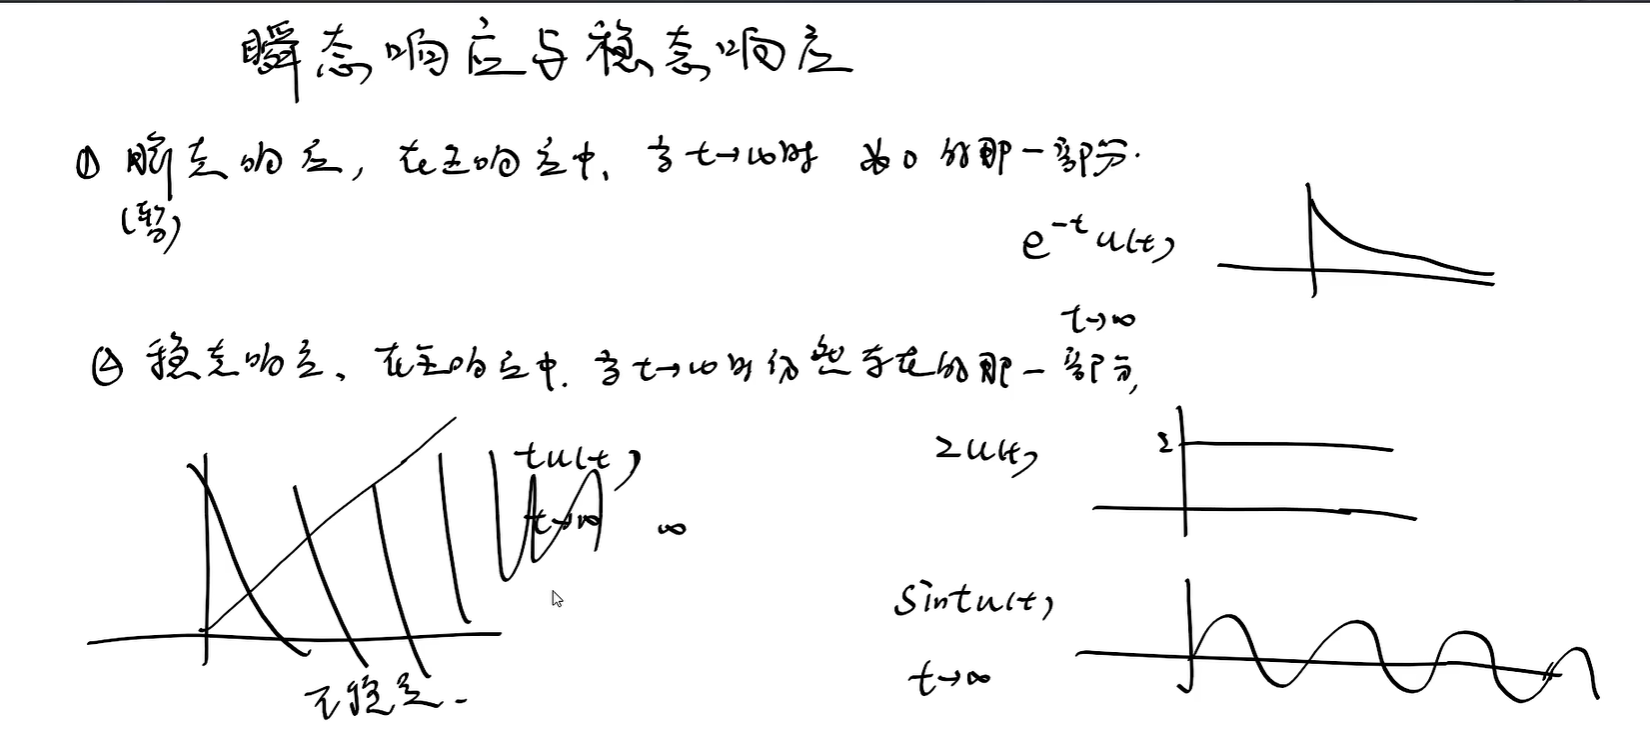 瞬态响应与稳态响应
① 瞬态响应，在全响应中，当t→∞时 为0的那一部分.
(暂)
e^{-t}u(t)
t→∞
② 稳态响应、在全响应中.当t→∞时仍然存在的那一部分,
tu(t)
t→∞ ∞
2u(t)
2
sintu(t)
t→∞
不稳定.